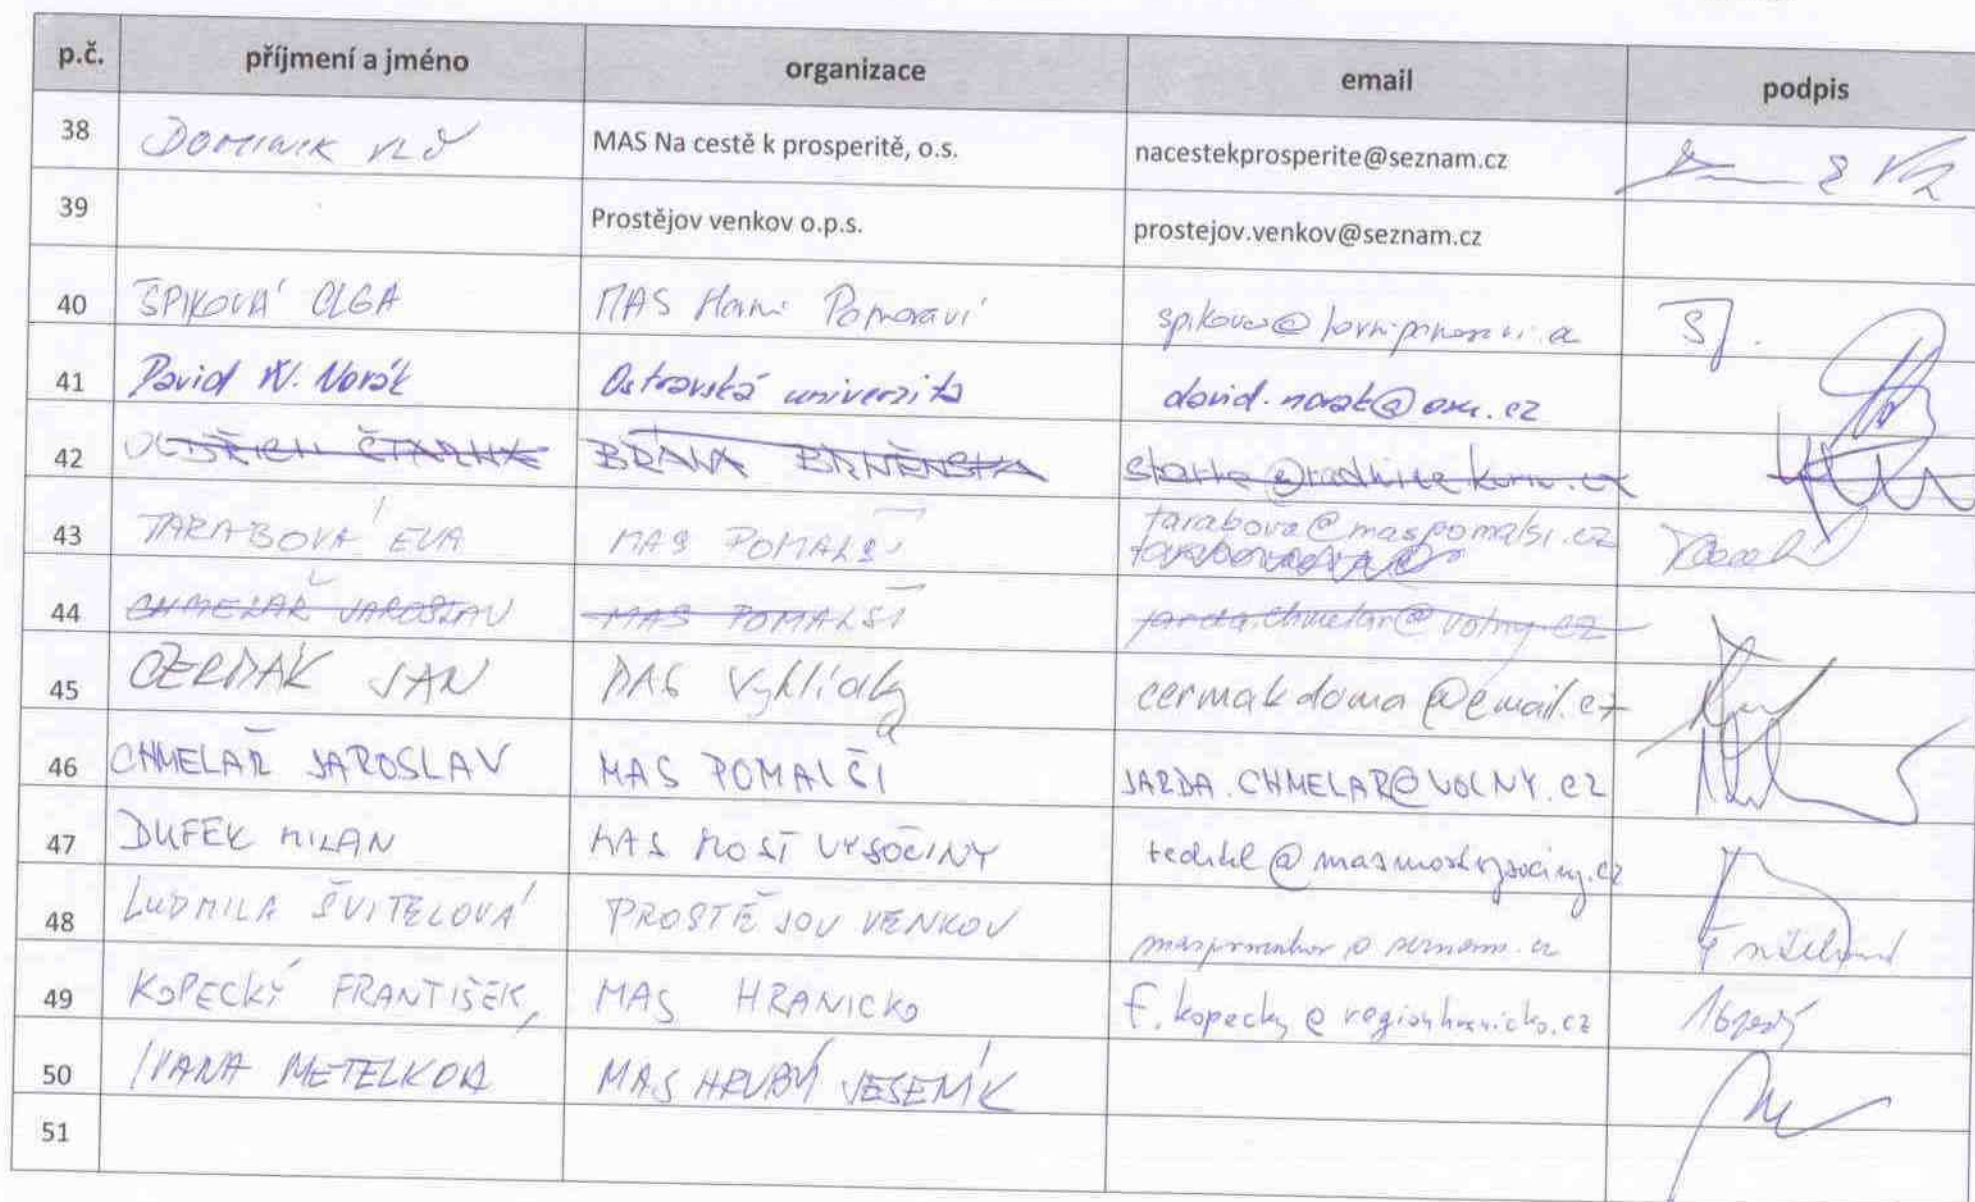 p.č. příjmení a jméno organizace email podpis
38 DOMINIK MAS Na cestě k prosperitě, o.s. nacestekprosperite@seznam.cz
39 Prostějov venkov o.p.s. prostejov.venkov@seznam.cz
40 ŠPIKOVÁ OLGA MAS Horní Pomoraví
41 David W. Novák Ostravská univerzita david.novak@osu.cz
42 BRÁNA BRNĚNSKA
43 TARABOVÁ EVA MAS POMALŠÍ tarabova@maspomalsi.cz
44 CHMELAŘ JAROSLAV MAS POMALŠÍ jarda.chmelar@volny.cz
45 ČERMÁK JAN MAS Vyhlídky cermakdoma@email.cz
46 CHMELAŘ JAROSLAV MAS POMALŠÍ JARDA.CHMELAR@VOLNY.CZ
47 DUFEK MILAN MAS MOST VYSOČINY
48 LUDMILA ŠVITELOVÁ PROSTĚJOV VENKOV
49 KOPECKÝ FRANTIŠEK, MAS HRANICKO f.kopecky@regionhranicko.cz
50 IVANA METELKOVA MAS HRUBÝ JESENÍK
51